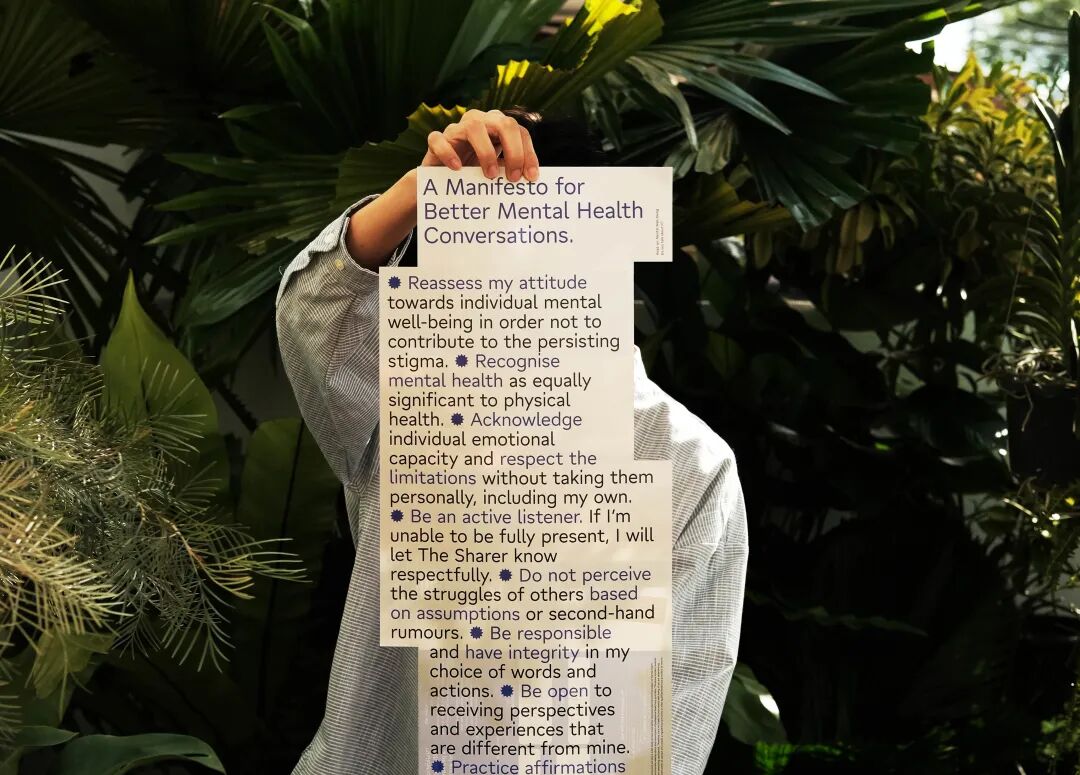 A Manifesto for
Better Mental Health
Conversations.
✹ Reassess my attitude
towards individual mental
well-being in order not to
contribute to the persisting
stigma. ✹ Recognise
mental health as equally
significant to physical
health. ✹ Acknowledge
individual emotional
capacity and respect the
limitations without taking them
personally, including my own.
✹ Be an active listener. If I'm
unable to be fully present, I will
let The Sharer know
respectfully. ✹ Do not perceive
the struggles of others based
on assumptions or second-hand
rumours. ✹ Be responsible
and have integrity in my
choice of words and
actions. ✹ Be open to
receiving perspectives
and experiences that
are different from mine.
✹ Practice affirmations